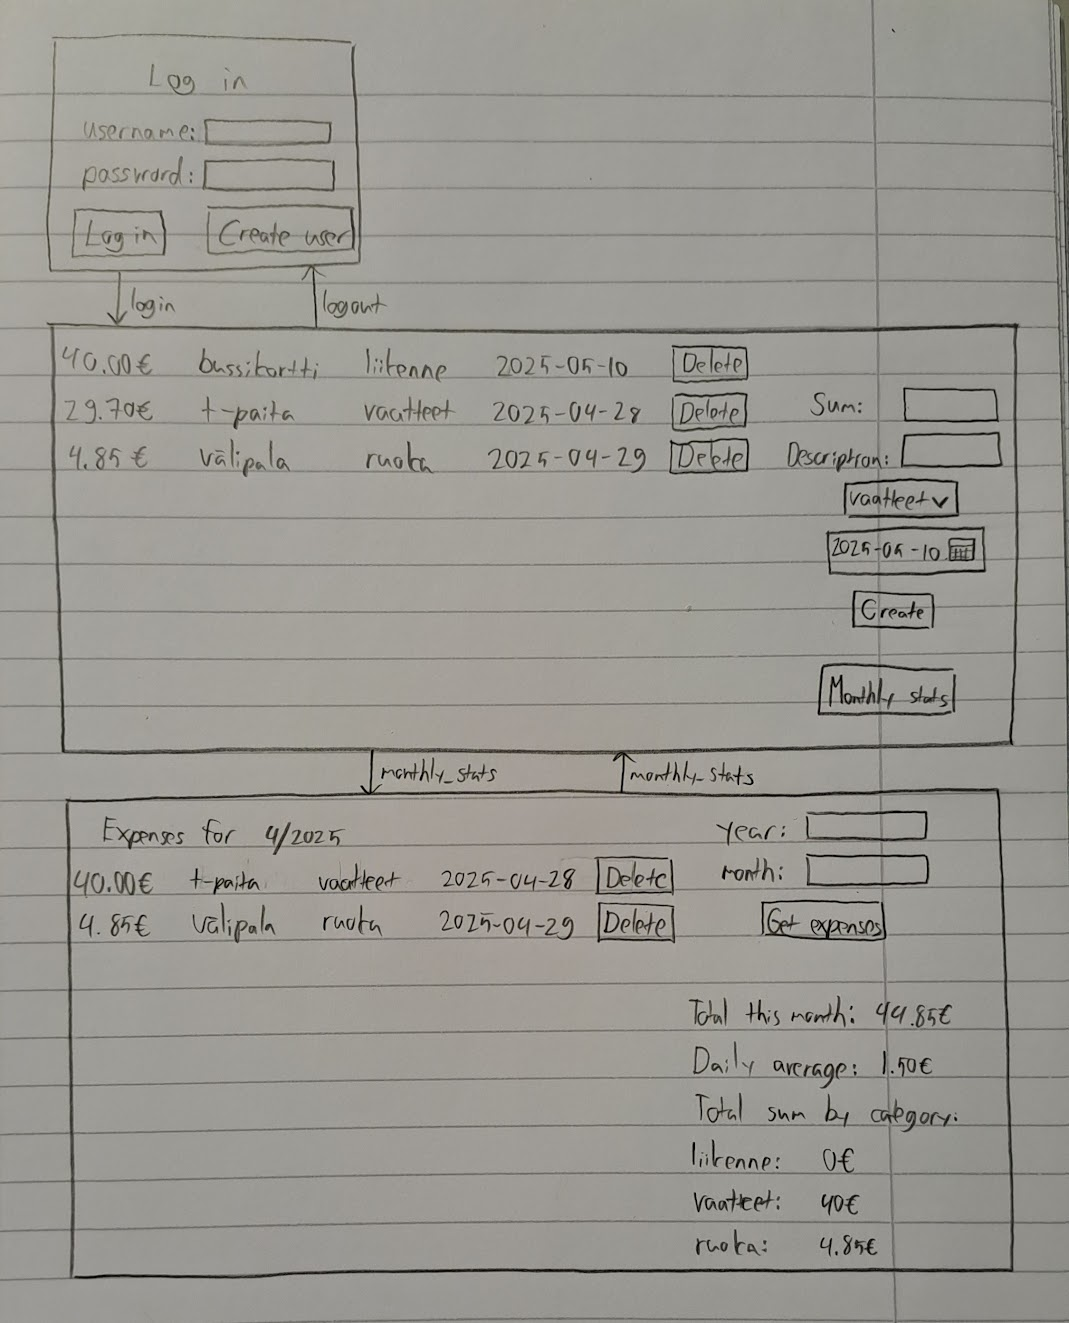 Log in
username:
password:
Log in Create user
login logout
40.00€ bussikortti liikenne 2025-05-10 Delete
29.70€ t-paita vaatteet 2025-04-28 Delete Sum:
4.85€ välipala ruoka 2025-04-29 Delete Description:
vaatteet
2025-05-10
Create
Monthly stats
monthly_stats monthly_stats
Expenses for 4/2025 year:
40.00€ t-paita vaatteet 2025-04-28 Delete month:
4.85€ välipala ruoka 2025-04-29 Delete Get expenses
Total this month: 44.85€
Daily average: 1.50€
Total sum by category:
liikenne: 0€
vaatteet: 40€
ruoka: 4.85€